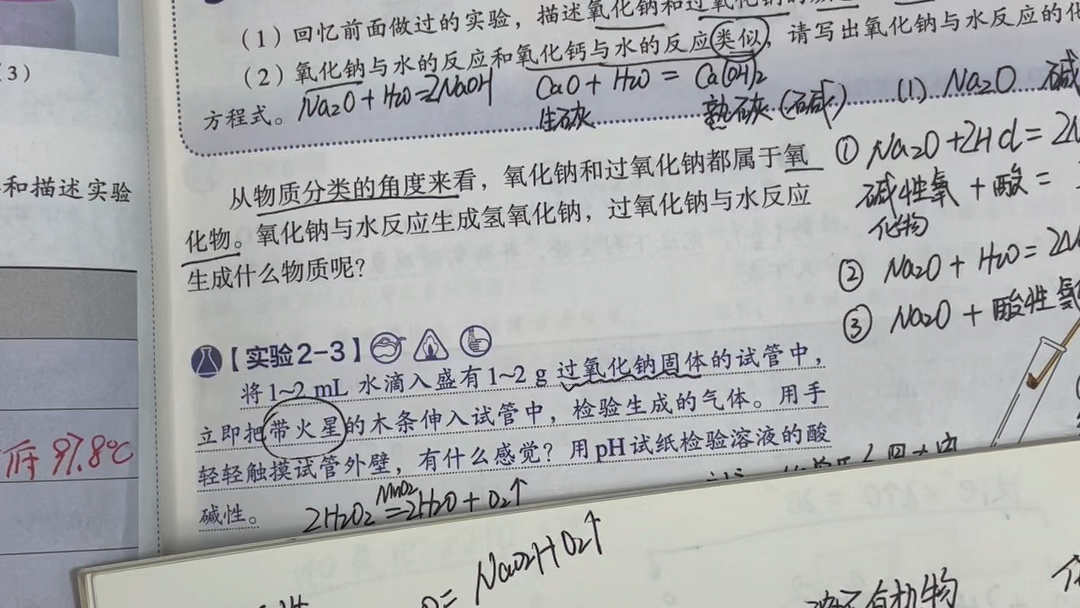 3）
（1）回忆前面做过的实验，描述氧化钠和过氧化钠的
（2）氧化钠与水的反应和氧化钙与水的反应类似，请写出氧化钠与水反应的化
方程式。
Na2O + H2O = 2NaOH
CaO + H2O = Ca(OH)2
生石灰
熟石灰
(1) Na2O 碱
和描述实验
从物质分类的角度来看，氧化钠和过氧化钠都属于氧
化物。氧化钠与水反应生成氢氧化钠，过氧化钠与水反应
生成什么物质呢？
① Na2O + 2HCl = 2
碱性氧 + 酸 =
化物
② Na2O + H2O = 2
③ Na2O + 酸性氧
【实验2-3】
将1~2 mL 水滴入盛有1~2 g 过氧化钠固体的试管中，
立即把带火星的木条伸入试管中，检验生成的气体。用手
轻轻触摸试管外壁，有什么感觉？用pH试纸检验溶液的酸
碱性。
97.8℃
MnO2
2H2O2 = 2H2O + O2↑